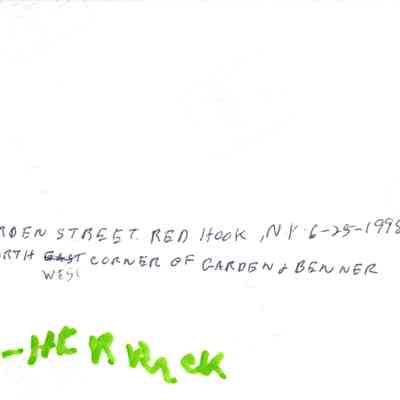 RDEN STREET. RED HOOK, NY 6-25-1998
RTH EAST CORNER OF GARDEN & BENNER
WEST
-HERRICK